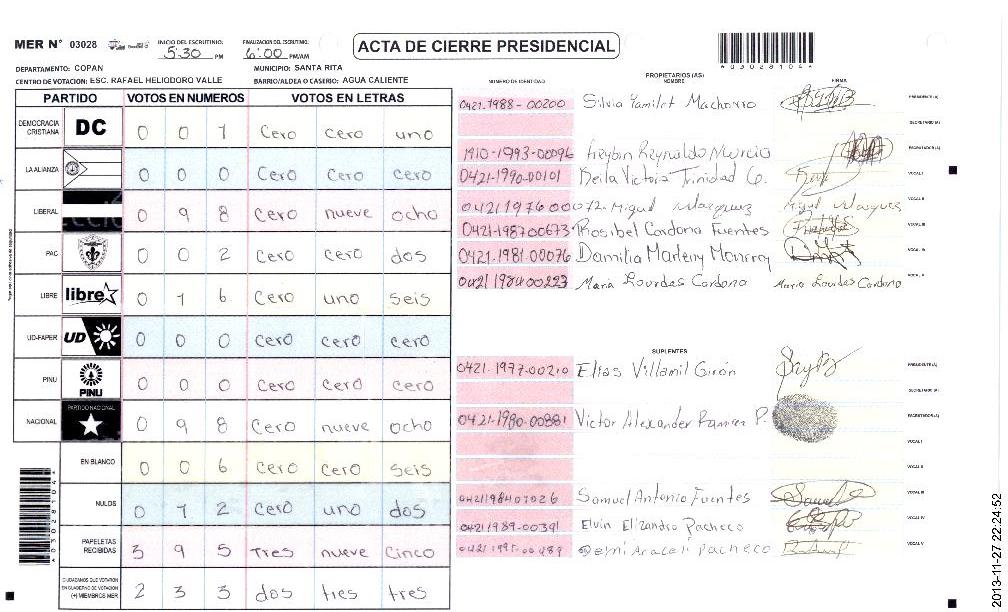 MER N° 03028
INICIO DEL ESCRUTINIO: 5:30 PM
FINALIZACION DEL ESCRUTINIO: 6:00 PM/AM
ACTA DE CIERRE PRESIDENCIAL
A030281044
DEPARTAMENTO: COPAN
MUNICIPIO: SANTA RITA
CENTRO DE VOTACION: ESC. RAFAEL HELIODORO VALLE
BARRIO/ALDEA O CASERIO: AGUA CALIENTE
PARTIDO VOTOS EN NUMEROS VOTOS EN LETRAS
DEMOCRACIA CRISTIANA DC 0 0 1 cero cero uno
LA ALIANZA 0 0 0 cero cero cero
LIBERAL 0 9 8 cero nueve ocho
PAC 0 0 2 cero cero dos
LIBRE libre 0 1 6 cero uno seis
UD-FAPER UD 0 0 0 cero cero cero
PINU PINU 0 0 0 cero cero cero
NACIONAL PARTIDO NACIONAL 0 9 8 cero nueve ocho
EN BLANCO 0 0 6 cero cero seis
NULOS 0 1 2 cero uno dos
PAPELETAS RECIBIDAS 3 9 5 Tres nueve cinco
CIUDADANOS QUE VOTARON EN CUADERNO DE VOTACION (+) MIEMBROS MER 2 3 3 dos tres tres
A030281044
NUMERO DE IDENTIDAD PROPIETARIOS (AS) NOMBRE FIRMA
0421-1988-00200 Silvia Yamilet Machorro PRESIDENTE(A)
SECRETARIO(A)
1910-1993-00096 Reynaldo Murcia ESCRUTADOR(A)
0421-1990-00101 Keila Victoria Trinidad G. VOCAL I
0421197600072 Miguel Vasquez Miguel Vasquez VOCAL II
0421-198700673 Rosibel Cardona Fuentes VOCAL III
0421-1981-00076 Damilia Marleny Monrroy VOCAL IV
0421198400223 Maria Lourdes Cardona Maria Lourdes Cardona VOCAL V
SUPLENTES
0421-1977-00210 Elias Villamil Girón PRESIDENTE(A)
SECRETARIO(A)
0421-1980-00881 Victor Alexander Ramirez P. ESCRUTADOR(A)
VOCAL I
VOCAL II
Samuel Antonio Fuentes VOCAL III
0421-1989-00391 Elvin Elizandro Pacheco VOCAL IV
Araceli pacheco VOCAL V
2013-11-27 22:24:52